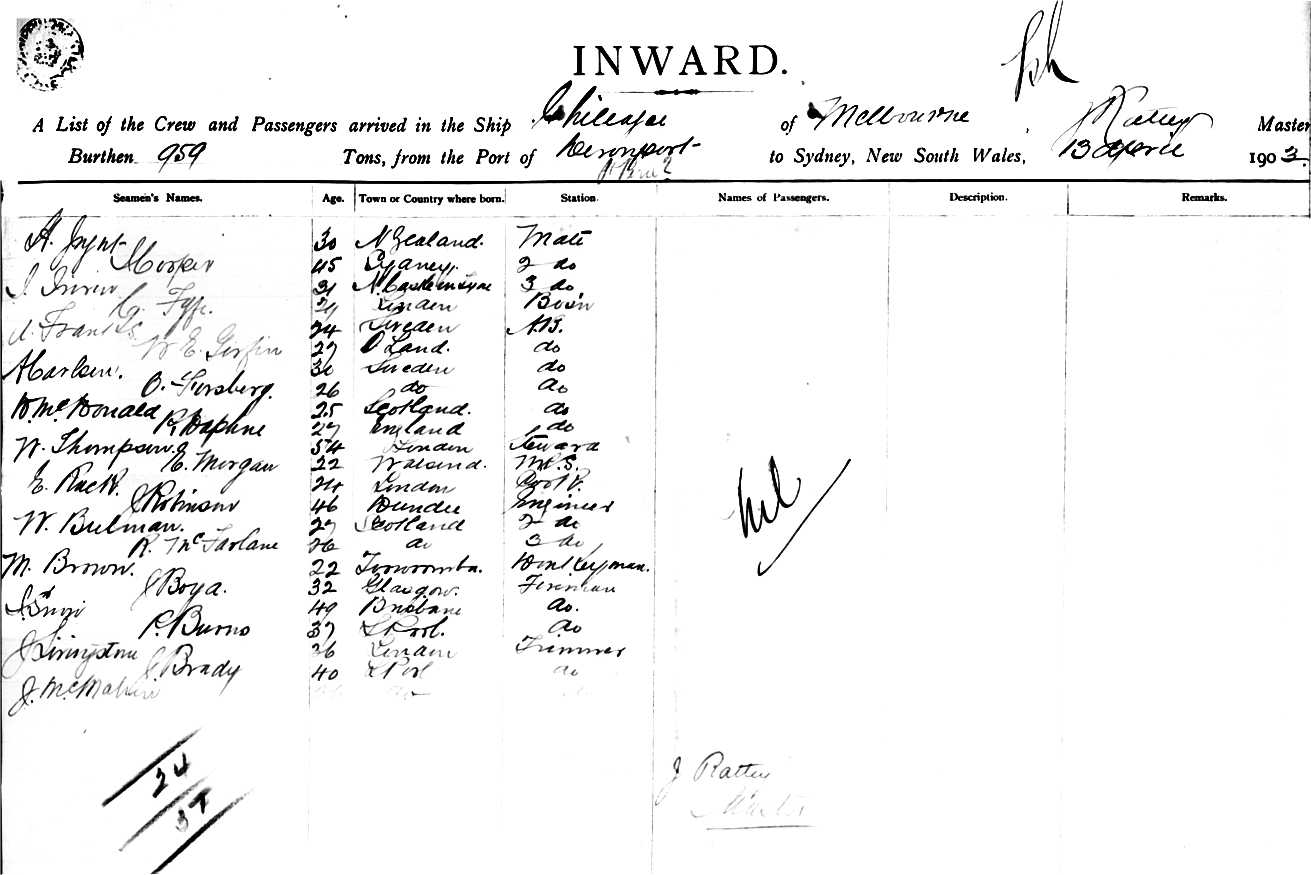 INWARD.
A List of the Crew and Passengers arrived in the Ship of Melbourne, J Rattey Master
Burthen 959 Tons, from the Port of Devonport to Sydney, New South Wales, 13 April 1903.
Seamen's Names. Age. Town or Country where born. Station. Names of Passengers. Description. Remarks.
H. 30 N Zealand. Mate
Hooper 45 Sydney. 2 do
J. Irwin 31 N. Castle on Tyne 3 do
C. Fyfe. 29 London Bosn
A. 24 Sweden A.B.
W E 27 O Land. do
A Carlsen. 30 Sweden do
O. Forsberg. 26 do do
D. McDonald 25 Scotland. do
R. Daphne 27 England do
W. Thompson 54 London Steward
E. Morgan 22 Walsend. M.R.S.
E. Rack. 24 London Cook.
J Robinson 46 Dundee Engineer
W. Bulman. 27 Scotland 2 do
R. McFarlane 26 do 3 do
M. Brown. 22 Toowoomba. Donkeyman.
J Boyd. 32 Glasgow. Fireman
49 Brisbane do.
P. Burns 37 L Pool. do
J Livingstone 26 London Trimmer
J Brady 40 L Pool do
J. McMahon do
nil
24
37
J Rattey
Master